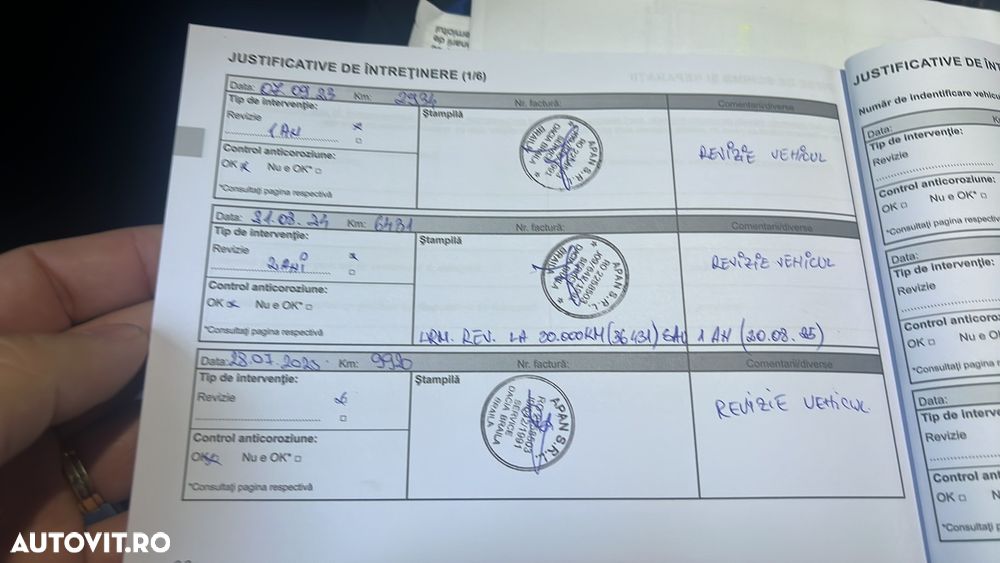 JUSTIFICATIVE DE ÎNTREȚINERE (1/6)
Data: 07.09.23 Km: 2934 Nr. factură: Comentarii/diverse
Tip de intervenție: Ștampilă
Revizie
1 AN
REVIZIE VEHICUL
Control anticoroziune:
OK Nu e OK*
*Consultați pagina respectivă
APAN S.R.L.
SERVICE
DACIA BRAILA
BRAILA
Data: 21.08.24 Km: 6431 Comentarii/diverse
Tip de intervenție: Ștampilă
Revizie
2 ANI
REVIZIE VEHICUL
Control anticoroziune:
OK Nu e OK*
*Consultați pagina respectivă
APAN S.R.L.
RO 2258503
BRAILA
URM. REV. LA 30.000KM (36431) SAU 1 AN (20.08.25)
Data: 28.07.2025 Km: 9920 Nr. factură: Comentarii/diverse
Tip de intervenție: Ștampilă
Revizie
REVIZIE VEHICUL
Control anticoroziune:
OK Nu e OK*
*Consultați pagina respectivă
APAN S.R.L.
SERVICE
DACIA BRAILA
BRAILA
JUSTIFICATIVE DE ÎNT
Număr de indentificare vehicu
Data: K
Tip de intervenție:
Revizie
Control anticoroziune:
OK Nu e OK*
*Consultați pagina respectiv
Data:
Tip de intervenție:
Revizie
Control anticoroz
OK Nu e O
*Consultați pagina
Data:
Tip de interve
Revizie
Control anti
OK N
*Consultați p
AUTOVIT.RO